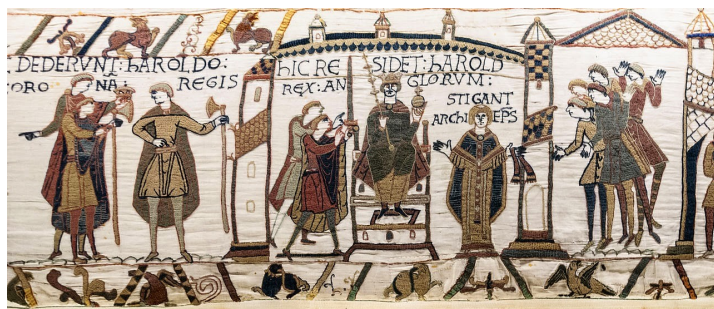 DEDERVNT: hAROLDO:
CORO NA: REGIS
hIC RE SIDET: hAROLD
REX: AN GLORVM:
STIGANT
ARChI EP̅S